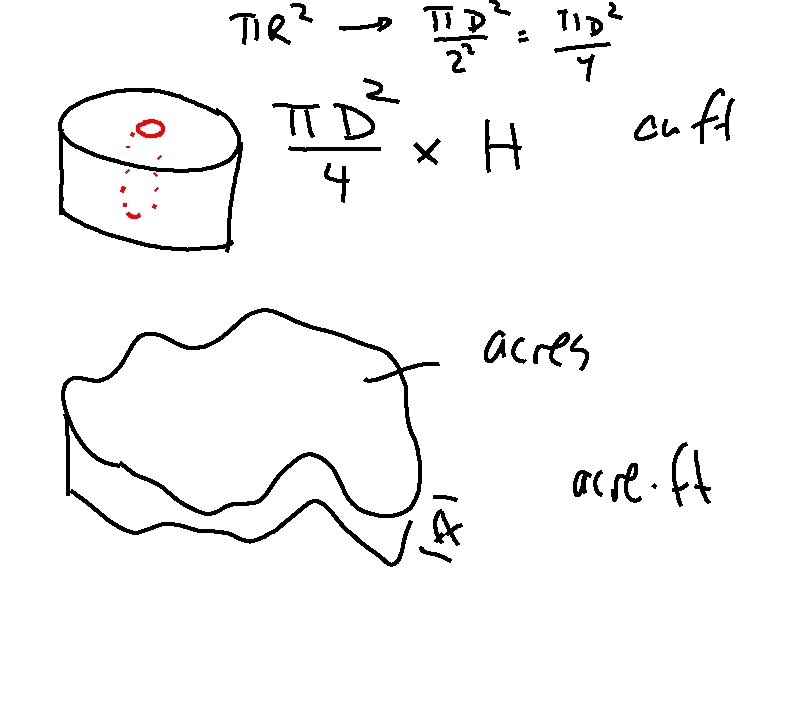 πR² → πD²/2² = πD²/4
πD²/4 × H cu ft
acres
acre·ft